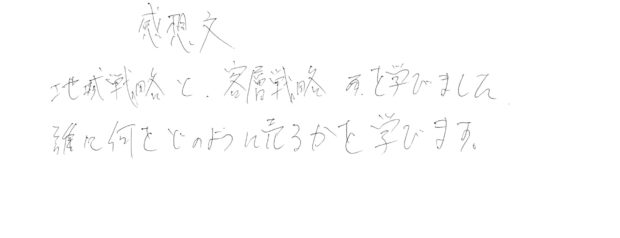 感想文
地域戦略と、客層戦略を学びました
誰に何をどのように売るかを学びます。